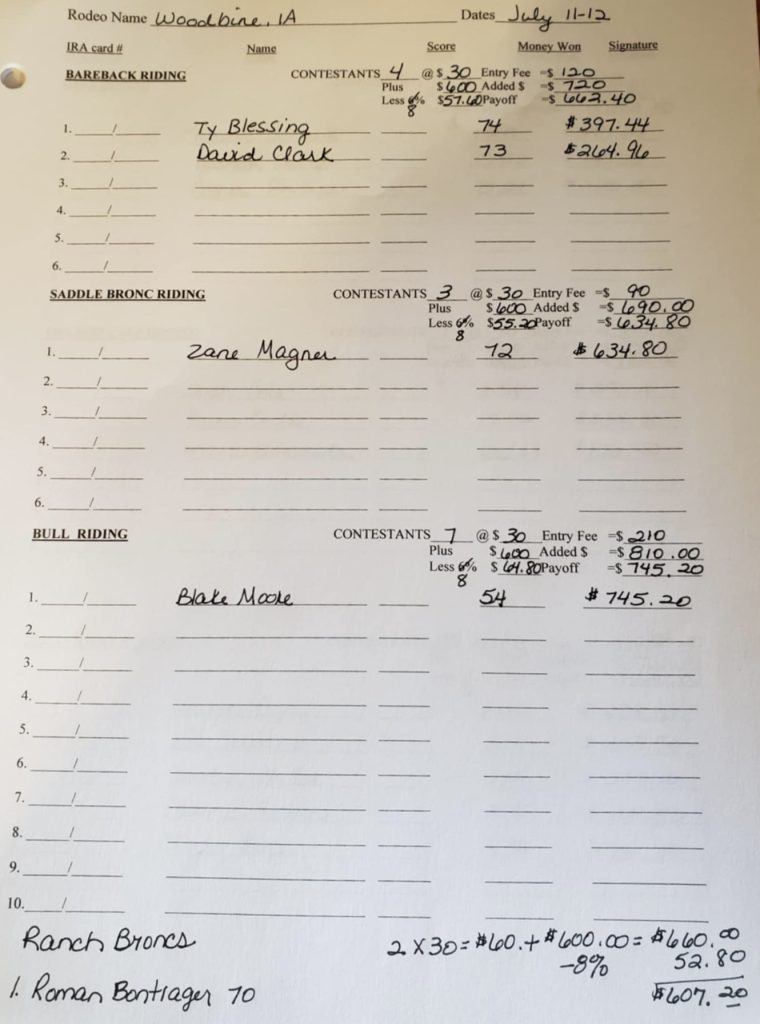 Rodeo Name Woodbine, IA Dates July 11-12
IRA card # Name Score Money Won Signature
BAREBACK RIDING CONTESTANTS 4 @ $ 30 Entry Fee =$ 120
Plus $ 600 Added $ =$ 720
Less 6% $57.60 Payoff =$ 662.40
8
1. / Ty Blessing 74 $397.44
2. / David Clark 73 $264.96
3. /
4. /
5. /
6. /
SADDLE BRONC RIDING CONTESTANTS 3 @ $ 30 Entry Fee =$ 90
Plus $ 600 Added $ =$ 690.00
Less 6% $55.20 Payoff =$ 634.80
8
1. / Zane Magner 72 $634.80
2. /
3. /
4. /
5. /
6. /
BULL RIDING CONTESTANTS 7 @ $ 30 Entry Fee =$ 210
Plus $ 600 Added $ =$ 810.00
Less 6% $ 64.80 Payoff =$ 745.20
8
1. / Blake Moore 54 $745.20
2. /
3. /
4. /
5. /
6. /
7. /
8. /
9. /
10. /
Ranch Broncs 2 X 30 = $60. + $600.00 = $660.00
-8% 52.80
1. Roman Bontrager 70 $607.20